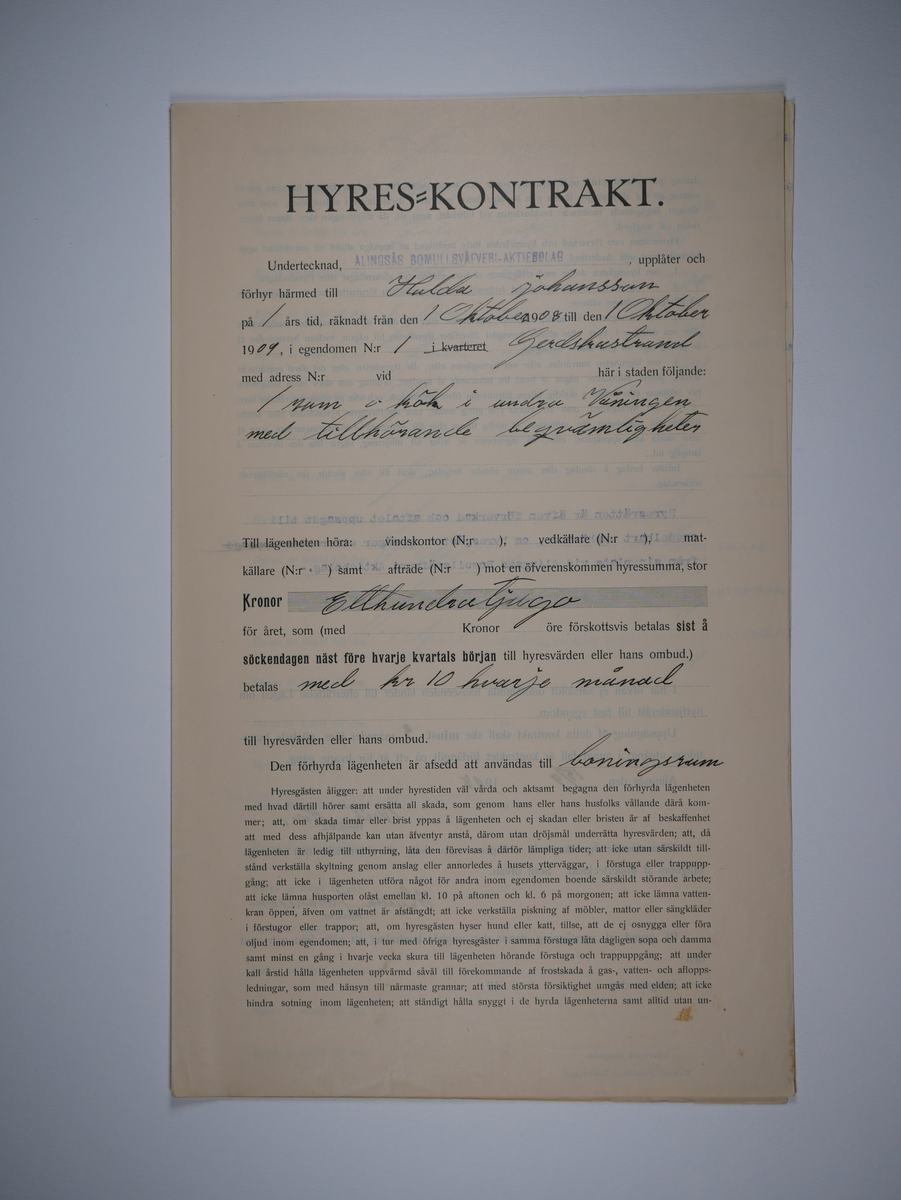 HYRES=KONTRAKT.
Undertecknad, ALINGSÅS BOMULLSVÄFVERI-AKTIEBOLAG, upplåter och
förhyr härmed till Hulda Johansson
på 1 års tid, räknadt från den 1 Oktober 1908 till den 1 Oktober
1909, i egendomen N:r 1 i kvarteret Gerdskastrand
med adress N:r vid här i staden följande:
1 rum o kök i undra Våningen
med tillhörande beqvämligheter
Till lägenheten höra: vindskontor (N:r ), vedkällare (N:r "), mat-
källare (N:r ) samt afträde (N:r ) mot en öfverenskommen hyressumma, stor
Kronor Etthundratjugo
för året, som (med Kronor öre förskottsvis betalas sist å
söckendagen näst före hvarje kvartals början till hyresvärden eller hans ombud.)
betalas med kr 10 hvarje månad
till hyresvärden eller hans ombud.
Den förhyrda lägenheten är afsedd att användas till boningsrum
Hyresgästen åligger: att under hyrestiden väl vårda och aktsamt begagna den förhyrda lägenheten
med hvad därtill hörer samt ersätta all skada, som genom hans eller hans husfolks vållande därå kom-
mer; att, om skada timar eller brist yppas å lägenheten och ej skadan eller bristen är af beskaffenhet
att med dess afhjälpande kan utan äfventyr anstå, därom utan dröjsmål underrätta hyresvärden; att, då
lägenheten är ledig till uthyrning, låta den förevisas å därför lämpliga tider; att icke utan särskildt till-
stånd verkställa skyltning genom anslag eller annorledes å husets ytterväggar, i förstuga eller trappupp-
gång; att icke i lägenheten utföra något för andra inom egendomen boende särskildt störande arbete;
att icke lämna husporten olåst emellan kl. 10 på aftonen och kl. 6 på morgonen; att icke lämna vatten-
kran öppen, äfven om vattnet är afstängdt; att icke verkställa piskning af möbler, mattor eller sängkläder
i förstugor eller trappor; att, om hyresgästen hyser hund eller katt, tillse, att de ej osnygga eller föra
oljud inom egendomen; att, i tur med öfriga hyresgäster i samma förstuga låta dagligen sopa och damma
samt minst en gång i hvarje vecka skura till lägenheten hörande förstuga och trappuppgång; att under
kall årstid hålla lägenheten uppvärmd såväl till förekommande af frostskada å gas-, vatten- och aflopps-
ledningar, som med hänsyn till närmaste grannar; att med största försiktighet umgås med elden; att icke
hindra sotning inom lägenheten; att ständigt hålla snyggt i de hyrda lägenheterna samt alltid utan un-